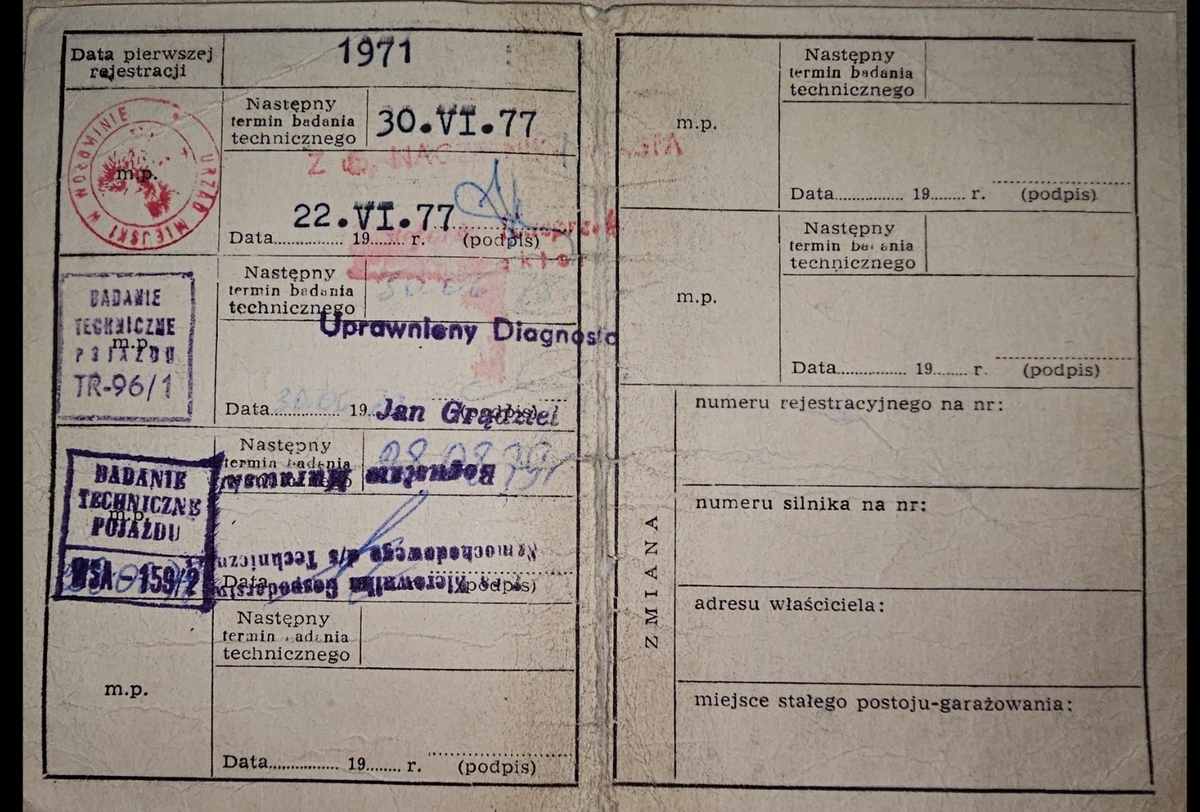 Data pierwszej
rejestracji
1971
m.p.
URZĄD MIEJSKI W WOŁOWINIE
Następny
termin badania
technicznego
30.VI.77
22.VI.77
Data............... 19....... r.
(podpis)
BADANIE
TECHNICZNE
POJAZDU
TR-96/1
m.p.
Następny
termin badania
technicznego
Uprawniony Diagnosta
Data............... 19
Jan Grądziel
(podpis)
BADANIE
TECHNICZNE
POJAZDU
m.p.
159/2
Następny
termin badania
technicznego
Bogusław
Samochodowego d/s Techniczn
Kierownika Gospodarstw
Data
(podpis)
m.p.
Następny
termin badania
technicznego
Data............... 19....... r.
(podpis)
m.p.
Następny
termin badania
technicznego
Data............... 19....... r.
(podpis)
m.p.
Następny
termin badania
technicznego
Data............... 19....... r.
(podpis)
ZMIANA
numeru rejestracyjnego na nr:
numeru silnika na nr:
adresu właściciela:
miejsce stałego postoju-garażowania: